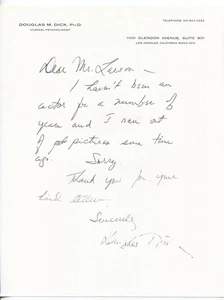 DOUGLAS M. DICK, Ph.D.
CLINICAL PSYCHOLOGIST
1100 GLENDON AVENUE, SUITE
LOS ANGELES, CALIFORNIA
Dear Mr. Lawson —
I haven't been an
actor for a number of
years and I ran out
of pictures some time
ago. Sorry.
Thank you for your
kind letter.
Sincerely
Douglas Dick